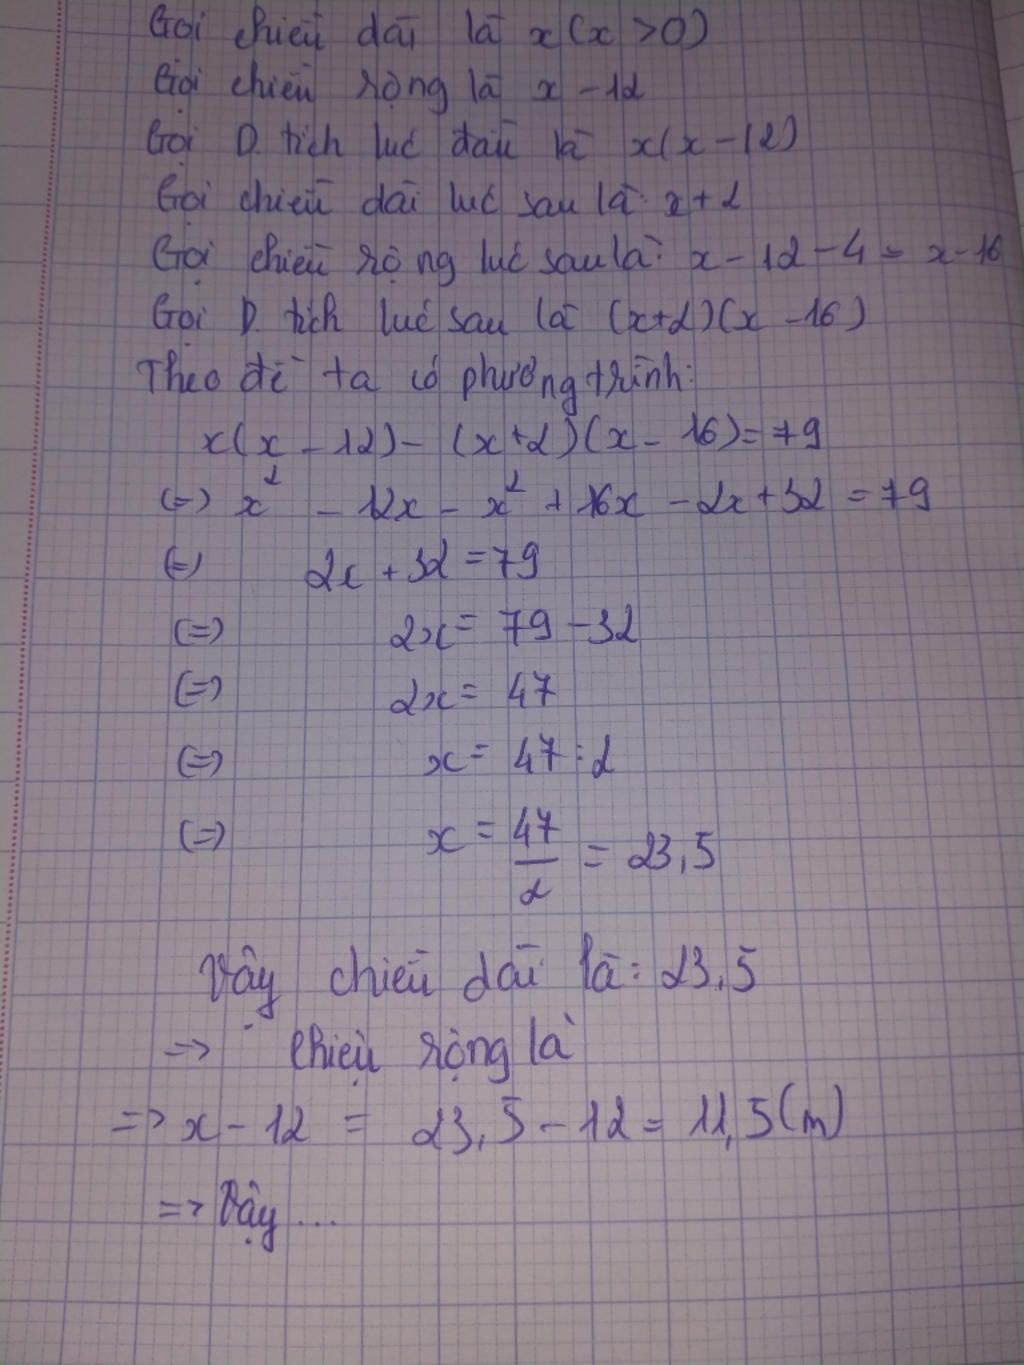 Gọi chiều dài là x (x > 0)
Gọi chiều rộng là x - 12
Gọi D. tích lúc đầu là x(x - 12)
Gọi chiều dài lúc sau là: x + 2
Gọi chiều rộng lúc sau là: x - 12 - 4 = x - 16
Gọi D. tích lúc sau là (x+2)(x - 16)
Theo đề ta có phương trình:
x(x - 12) - (x+2)(x - 16) = 79
(=) x² - 12x - x² + 16x - 2x + 32 = 79
(=) 2x + 32 = 79
(=) 2x = 79 - 32
(=) 2x = 47
(=) x = 47 : 2
(=) x = 47/2 = 23,5
Vậy chiều dài là: 23,5
=> chiều rộng là
=> x - 12 = 23,5 - 12 = 11,5 (m)
=> Vậy ...